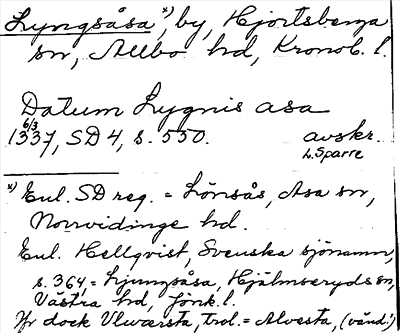 Lyngsåsa x), by, Hjortsberga
sn, Allbo hd, Kronob. l.
Datum Lygnis asa
6/3
1337, SD 4, s. 550. avskr.
L. Sparre
x) Enl. SD reg. = Lönsås, Asa sn,
Norrvidinge hd.
Enl. Hellqvist, Svenska sjönamn,
s. 364 = Ljungsåsa, Hjälmseryds sn,
Västra hd, Jönk. l.
Jfr dock Ulwærsta, trol. = Alvesta, (vänd!)